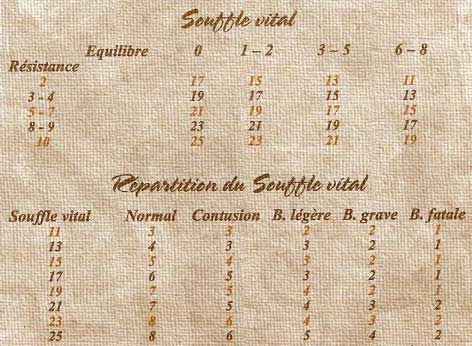 Souffle vital
Equilibre 0 1 – 2 3 – 5 6 – 8
Résistance
2 17 15 13 11
3 - 4 19 17 15 13
5 - 7 21 19 17 15
8 - 9 23 21 19 17
10 25 23 21 19
Répartition du Souffle vital
Souffle vital Normal Contusion B. légère B. grave B. fatale
11 3 3 2 2 1
13 4 3 3 2 1
15 5 4 3 2 1
17 6 5 3 2 1
19 7 5 4 2 1
21 7 5 4 3 2
23 8 6 4 3 2
25 8 6 5 4 2